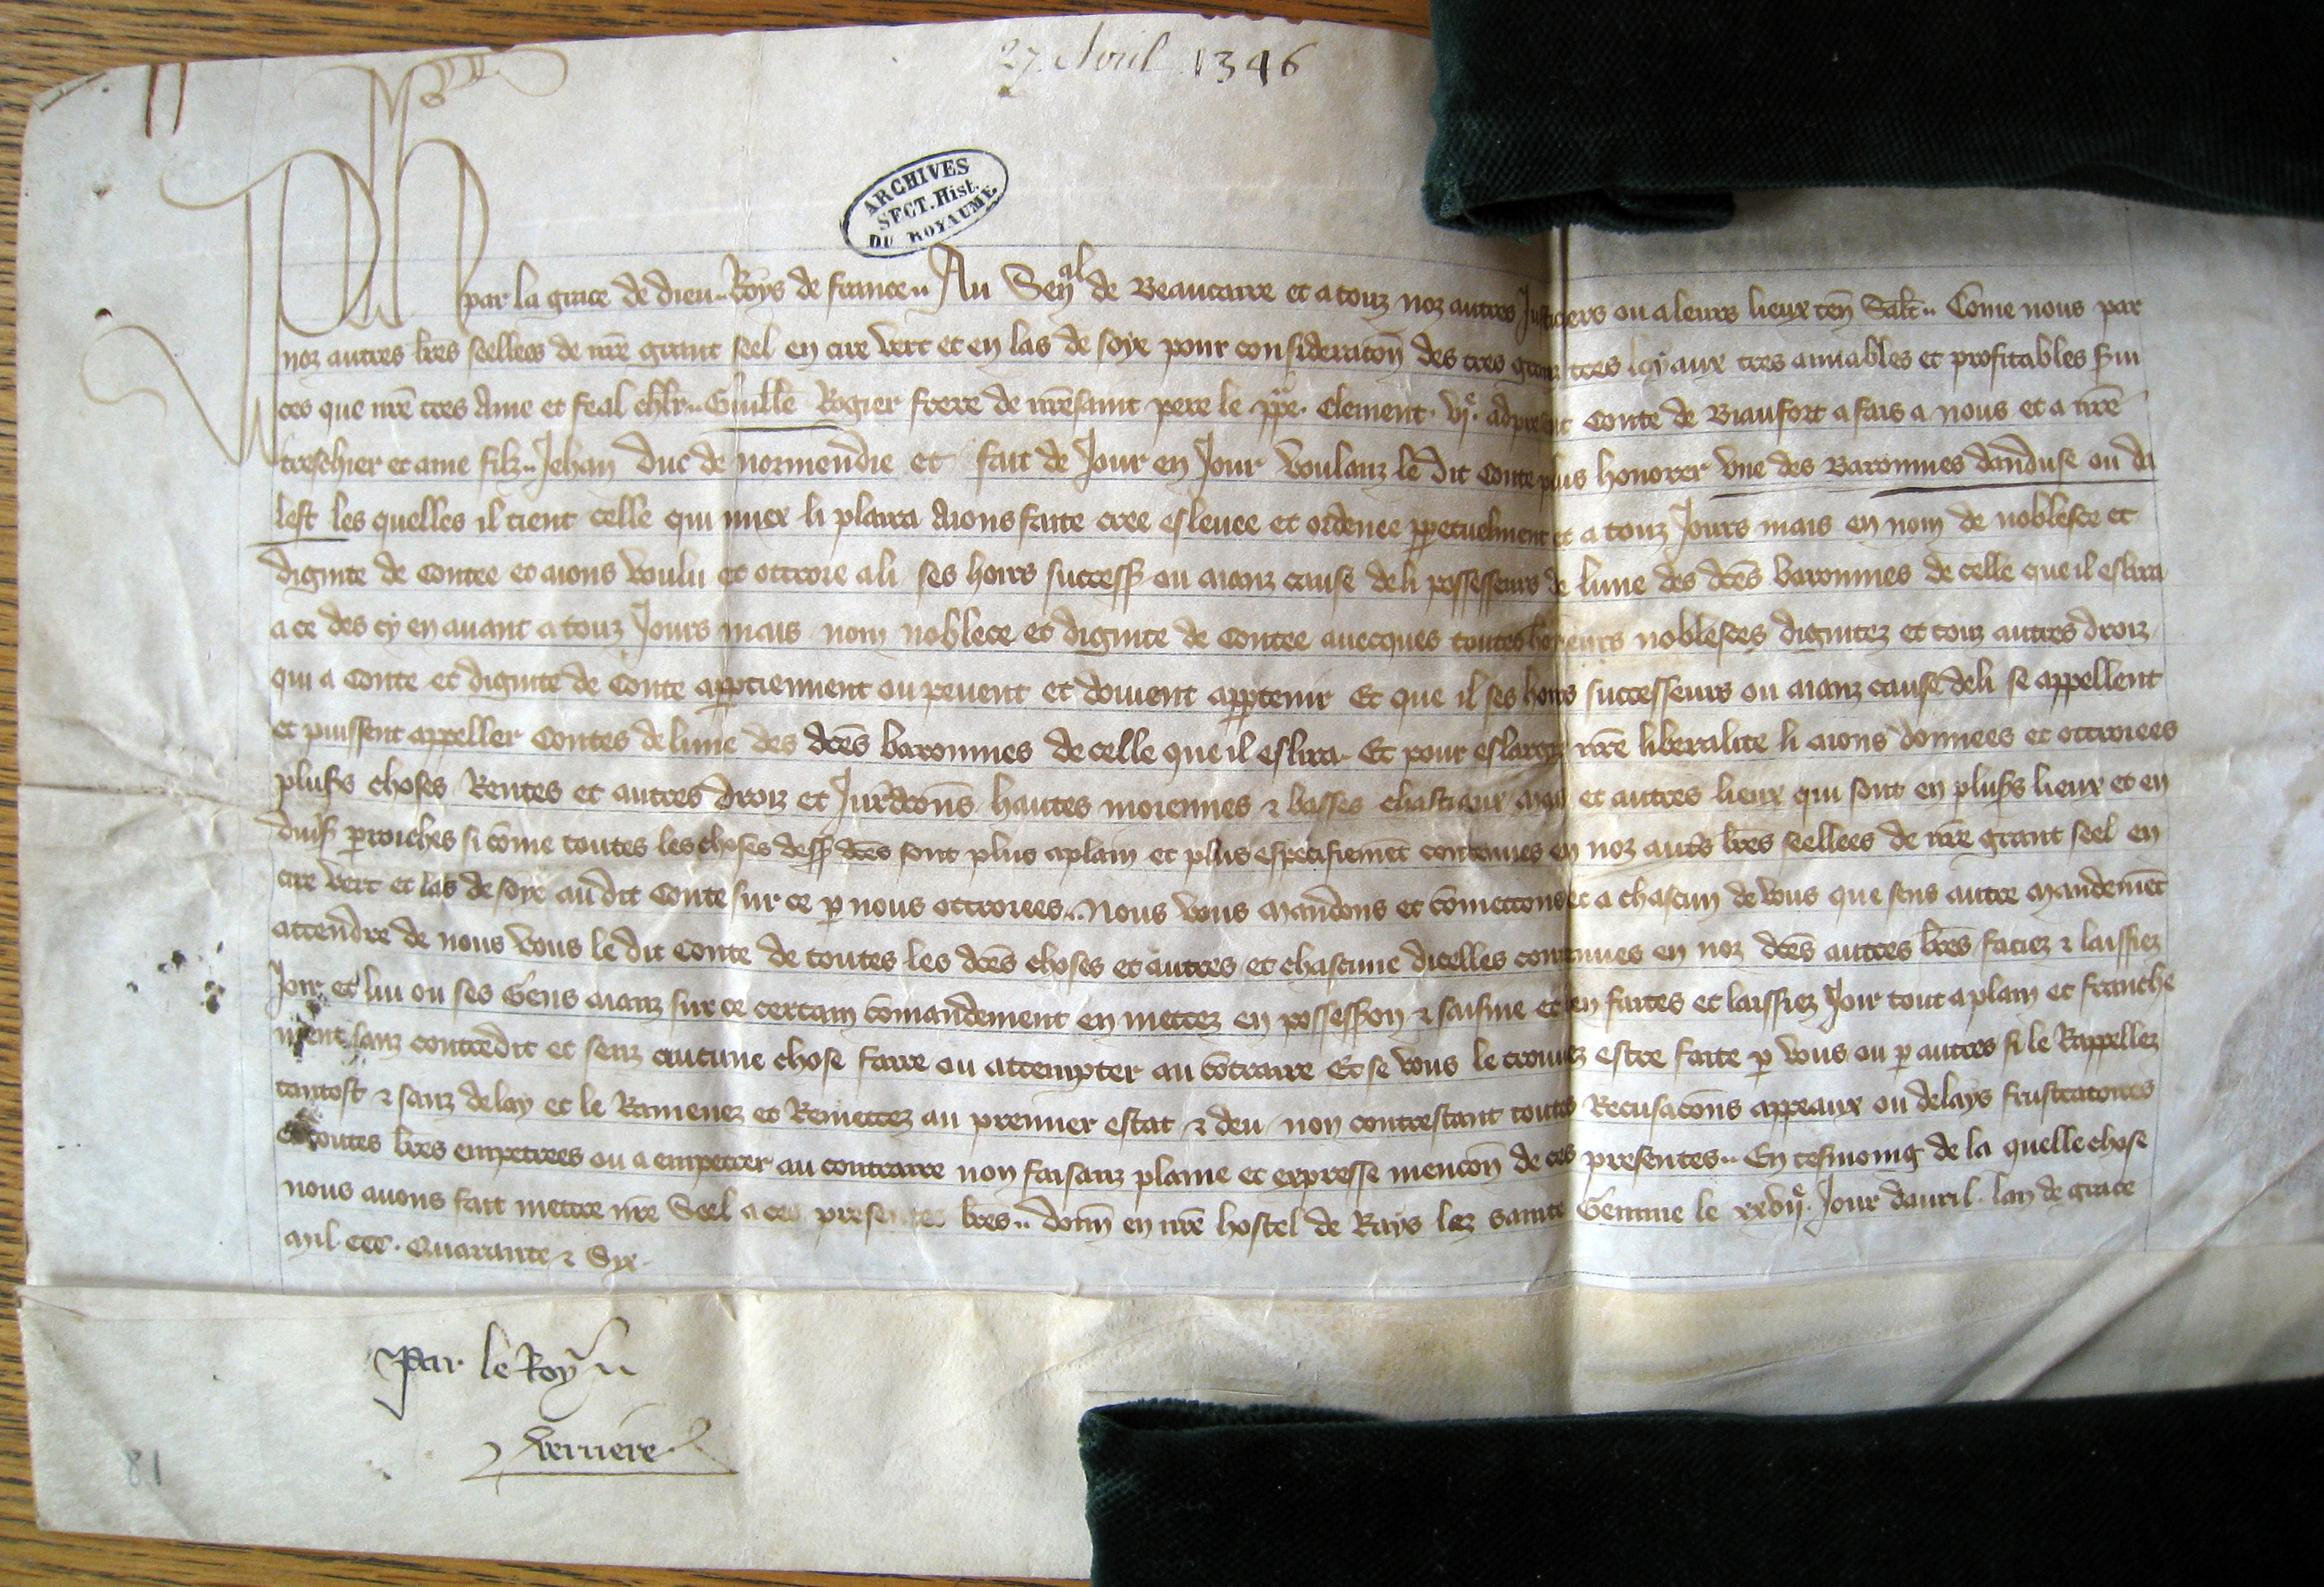 27 Avril 1346
ARCHIVES
SECT. Hist.
DU ROYAUME
Ph par la grace de dieu Roys de france Au Sen^al de Beaucaire et a touz noz autres Justiciers ou a leurs lieux ten̄ Salt̄ Come nous par
noz autres lr̄es seellees de nr̄e grant seel en cire vert et en las de soye pour consideracōn des tres granz tres loyaux tres amiables et profitables s̄ui
ces que nr̄e tres ame et feal chlr̄ Guill̄e Rogier frere de nr̄e saint pere le pp̄e Clement vjͤ adpresent Conte de Biaufort a fais a nous et a nr̄e
treschier et ame filz Jehan duc de normendie et fait de Jour en Jour Voulanz le dit Conte plus honorer une des Baronnies danduse ou da
lest les quelles il tient celle qui miex li plaira Aions faite cree eslevee et ordenee pp̄etuelment et a touz Jours mais en nom de noblesce et
dignite de Contee et aions voulu et ottroie a li ses hoirs success̄ ou aianz cause de li possesseurs de lune des dc̄es baronnies de celle que il eslira
a ce des cy en avant a touz Jours mais nom noblece et dignite de Contee avecques toutes honeurs noblesces dignitez et touz autres droiz
qui a Conte et dignite de Conte app̄tiennent ou pevent et doivent app̄tenir Et que il ses hoirs successeurs ou aianz cause de li se appellent
et puissent appeller Contes de lune des dc̄es baronnies de celle que il eslira Et pour eslargir nr̄e liberalite li aions donnees et ottroiees
plus̄s choses Rentes et autres droiz et Jurdcōns hautes moiennes & basses chastiaux et autres lieux qui sont en plus̄s lieux et en
div̄s p̄roiches si cōme toutes les choses dess̄ dc̄es sont plus aplain et plus especifiem̄et contenues en noz aut̄s lr̄es seellees de nr̄e grant seel en
cire vert et las de soye au dit Conte sur ce p̄ nous ottroiees Nous vous Mandons et cōmettons et a chascun de vous que sens autre mandem̄et
attendre de nous vous le dit Conte de toutes les dc̄es choses et autres et chascune dicelles contenues en noz dc̄es autres lr̄es faciez & laissiez
Joir et lui ou ses Gens aianz sur ce certain cōmandement en mettez en possess̄ion & saisine et en faites et laissiez Joir tout a plain et franche
ment sanz contredit et senz aucune chose faire ou attempter au cōtraire Et se vous le trouvez estre faite p̄ vous ou p̄ autres si le Rappellez
tantost & sanz delay et le Ramenez et Remettez au premier estat & deu non contrestant toutes Recusacōns appeaux ou delays frustratoires
et toutes lr̄es empetrees ou a empetrer au contraire non faisanz plaine et expresse mencōn de ces presentes En tesmoing de la quelle chose
nous avons fait mettre nr̄e Seel a ces presentes lr̄es donn̄ en nr̄e hostel de Rays lez sainte Gemme le xxvijͤ Jour davril lan de grace
Mil CCC Quarante & Syx
Par le Roy
Verriere
81